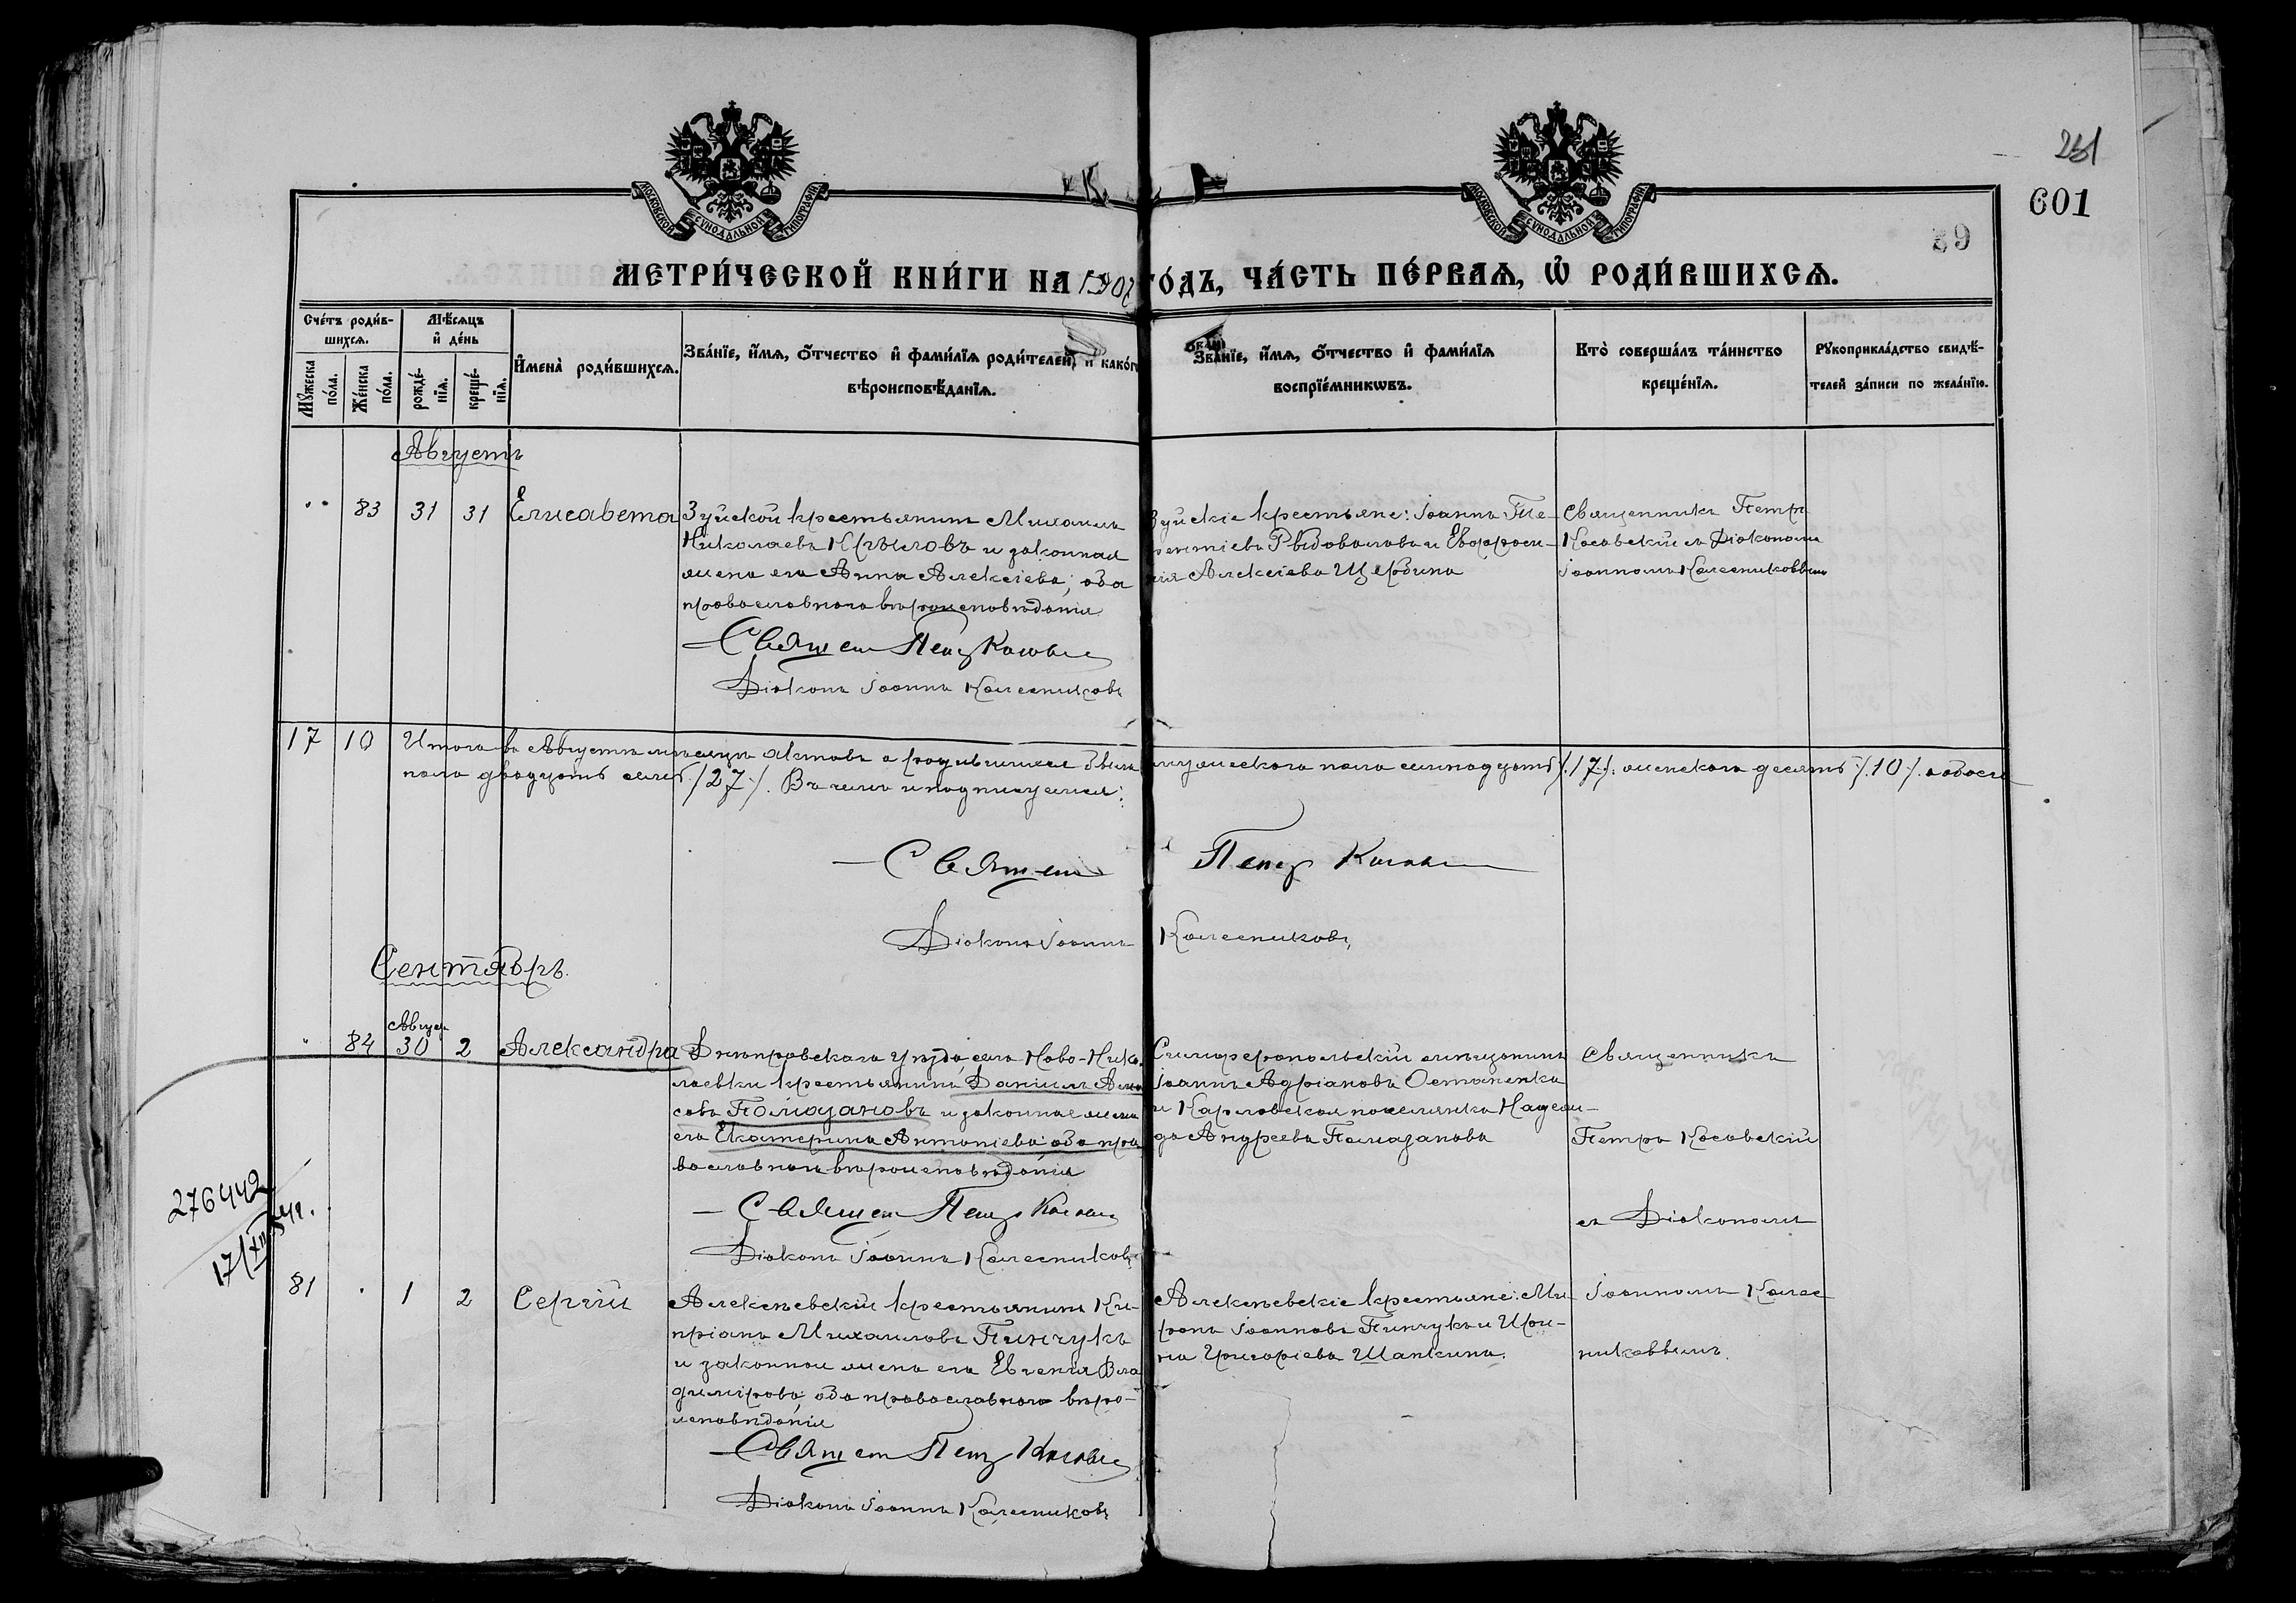 МОСКОВСКОЙ СѴНОДАЛЬНОЙ ТИПОГРАФІИ
МОСКОВСКОЙ СѴНОДАЛЬНОЙ ТИПОГРАФІИ
261
601
89
МЕТРИ́ЧЕСКОЙ КНИ́ГИ НА 1902 ГО́ДЪ, ЧА́СТЬ ПЕ́РВАѦ, Ѡ҆ РОДИ́ВШИХСѦ.
Сче́тъ роди́в-
шихсѧ.
Мѣ́сѧцъ
и҆ де́нь
Мꙋ́жеска
по́ла.
Же́нска
по́ла.
рожде́-
нїѧ.
креще́-
нїѧ.
И҆мена̀ роди́вшихсѧ.
Зва́нїе, и҆́мѧ, ѻ҆́тчество и҆ фами́лїѧ роди́телей, и҆ како́гѡ
вѣроисповѣ́данїѧ.
Зва́нїе, и҆́мѧ, ѻ҆́тчество и҆ фами́лїѧ
воспрїе́мникѡвъ.
Кто̀ соверша́лъ та́инство
креще́нїѧ.
Рꙋкоприкла́дство свидѣ́-
телей за́писи по жела́нїю.
Августъ
" 83 31 31 Елисавета
Зуйской крестьянинъ Михаилъ
Николаевъ Крыловъ и законная
жена его Анна Алексіева, оба
православнаго вѣроисповѣданія
Священ Петръ Косовск
Діаконъ Іоаннъ Колесниковъ
Зуйскіе крестьяне: Іоаннъ Те-
рентіевъ Рыбоваловъ и Евфроси-
нія Алексіева Щербина
Священникъ Петръ
Косовскій съ Діакономъ
Іоанномъ Колесниковымъ
17 10 Итого въ Августѣ мѣсяцѣ актовъ о родившихся было мужескаго пола семнадцать /.17./. женскаго десять /.10./. а обоего
пола двадцать семь /27./. Въ чемъ и подписуемся:
Священ Петръ Косовск
Діаконъ Іоаннъ Колесниковъ
Сентябрь.
" 84 Август 30 2 Александра
Днѣпровскаго уѣзда, села Ново-Нико-
лаевки крестьянинъ Даніилъ
Помазановъ и законная жена
его Екатерина Антоніева оба пра
вославнаго вѣроисповѣданія
Священ Петръ Косовск
Діаконъ Іоаннъ Колесниковъ
Симферопольскій мѣщанинъ
Іоаннъ Адріановъ Остапенко
и Карловская поселянка Надеж-
да Андреева Помазанова
Священникъ
Петръ Косовскій
съ Діакономъ
Іоанномъ Колес
никовымъ.
276442
17/XII
81 " 1 2 Сергій
Алексѣевскій крестьянинъ Ки-
пріанъ Михаиловъ Пинчукъ
и законная жена его Евгенія Вла
димірова, оба православнаго вѣро-
исповѣданія
Священ Петръ Косовск
Діаконъ Іоаннъ Колесниковъ
Алексѣевскіе крестьяне: Ми-
ронъ Іоанновъ Пинчукъ и Ири-
на Григоріева Шапкина.